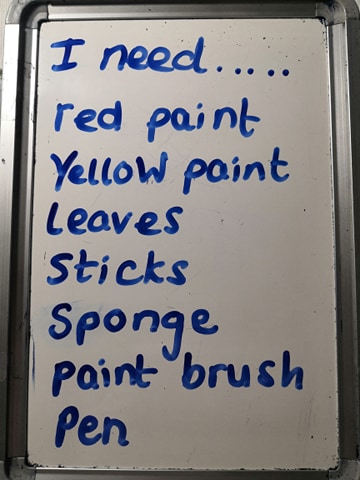 I need.....
red paint
Yellow paint
leaves
Sticks
Sponge
paint brush
Pen